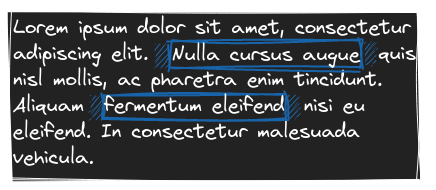 Lorem ipsum dolor sit amet, consectetur
adipiscing elit. Nulla cursus augue quis
nisl mollis, ac pharetra enim tincidunt.
Aliquam fermentum eleifend nisi eu
eleifend. In consectetur malesuada
vehicula.